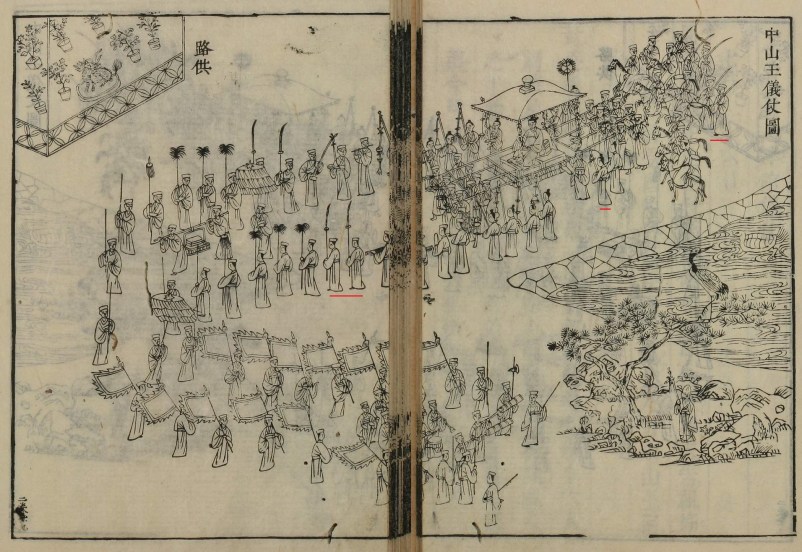 中山王儀仗圖
路供